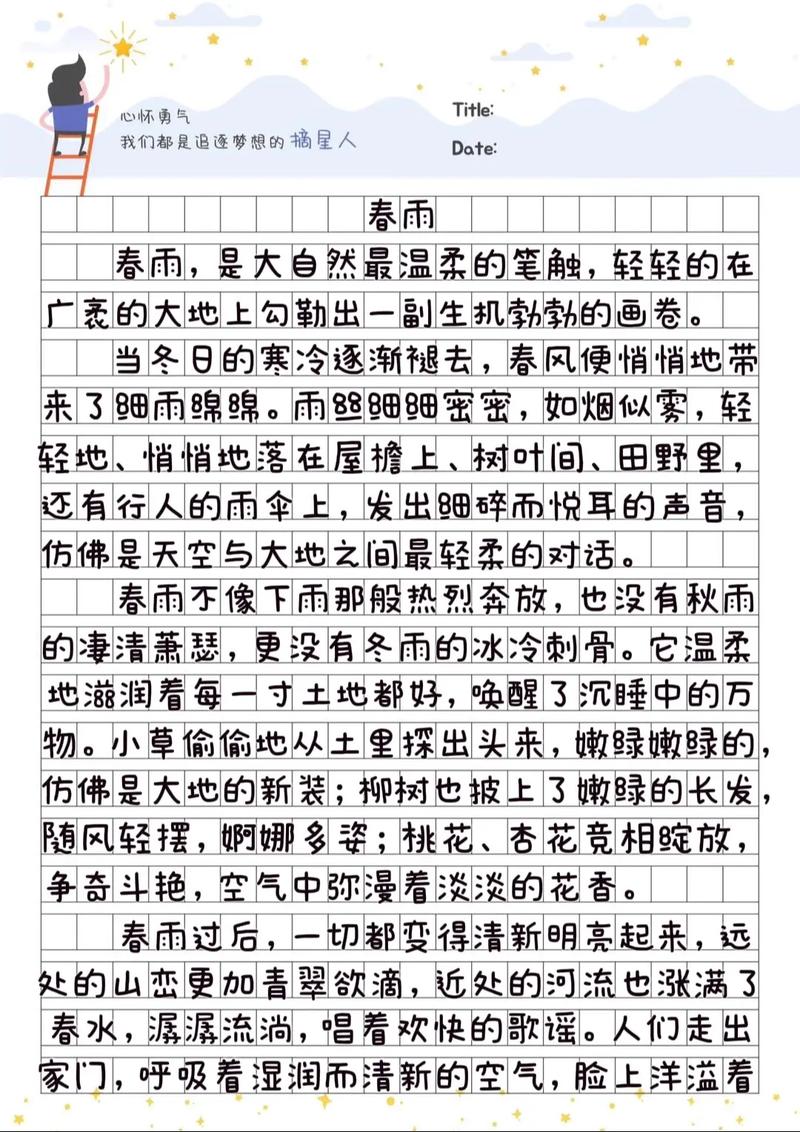 心怀勇气
我们都是追逐梦想的 摘星人
Title:
Date:
春雨
春雨，是大自然最温柔的笔触，轻轻的在
广袤的大地上勾勒出一副生机勃勃的画卷。
当冬日的寒冷逐渐褪去，春风便悄悄地带
来了细雨绵绵。雨丝细细密密，如烟似雾，轻
轻地、悄悄地落在屋檐上、树叶间、田野里，
还有行人的雨伞上，发出细碎而悦耳的声音，
仿佛是天空与大地之间最轻柔的对话。
春雨不像下雨那般热烈奔放，也没有秋雨
的凄清萧瑟，更没有冬雨的冰冷刺骨。它温柔
地滋润着每一寸土地都好，唤醒了沉睡中的万
物。小草偷偷地从土里探出头来，嫩绿嫩绿的，
仿佛是大地的新装；柳树也披上了嫩绿的长发，
随风轻摆，婀娜多姿；桃花、杏花竞相绽放，
争奇斗艳，空气中弥漫着淡淡的花香。
春雨过后，一切都变得清新明亮起来，远
处的山峦更加青翠欲滴，近处的河流也涨满了
春水，潺潺流淌，唱着欢快的歌谣。人们走出
家门，呼吸着湿润而清新的空气，脸上洋溢着